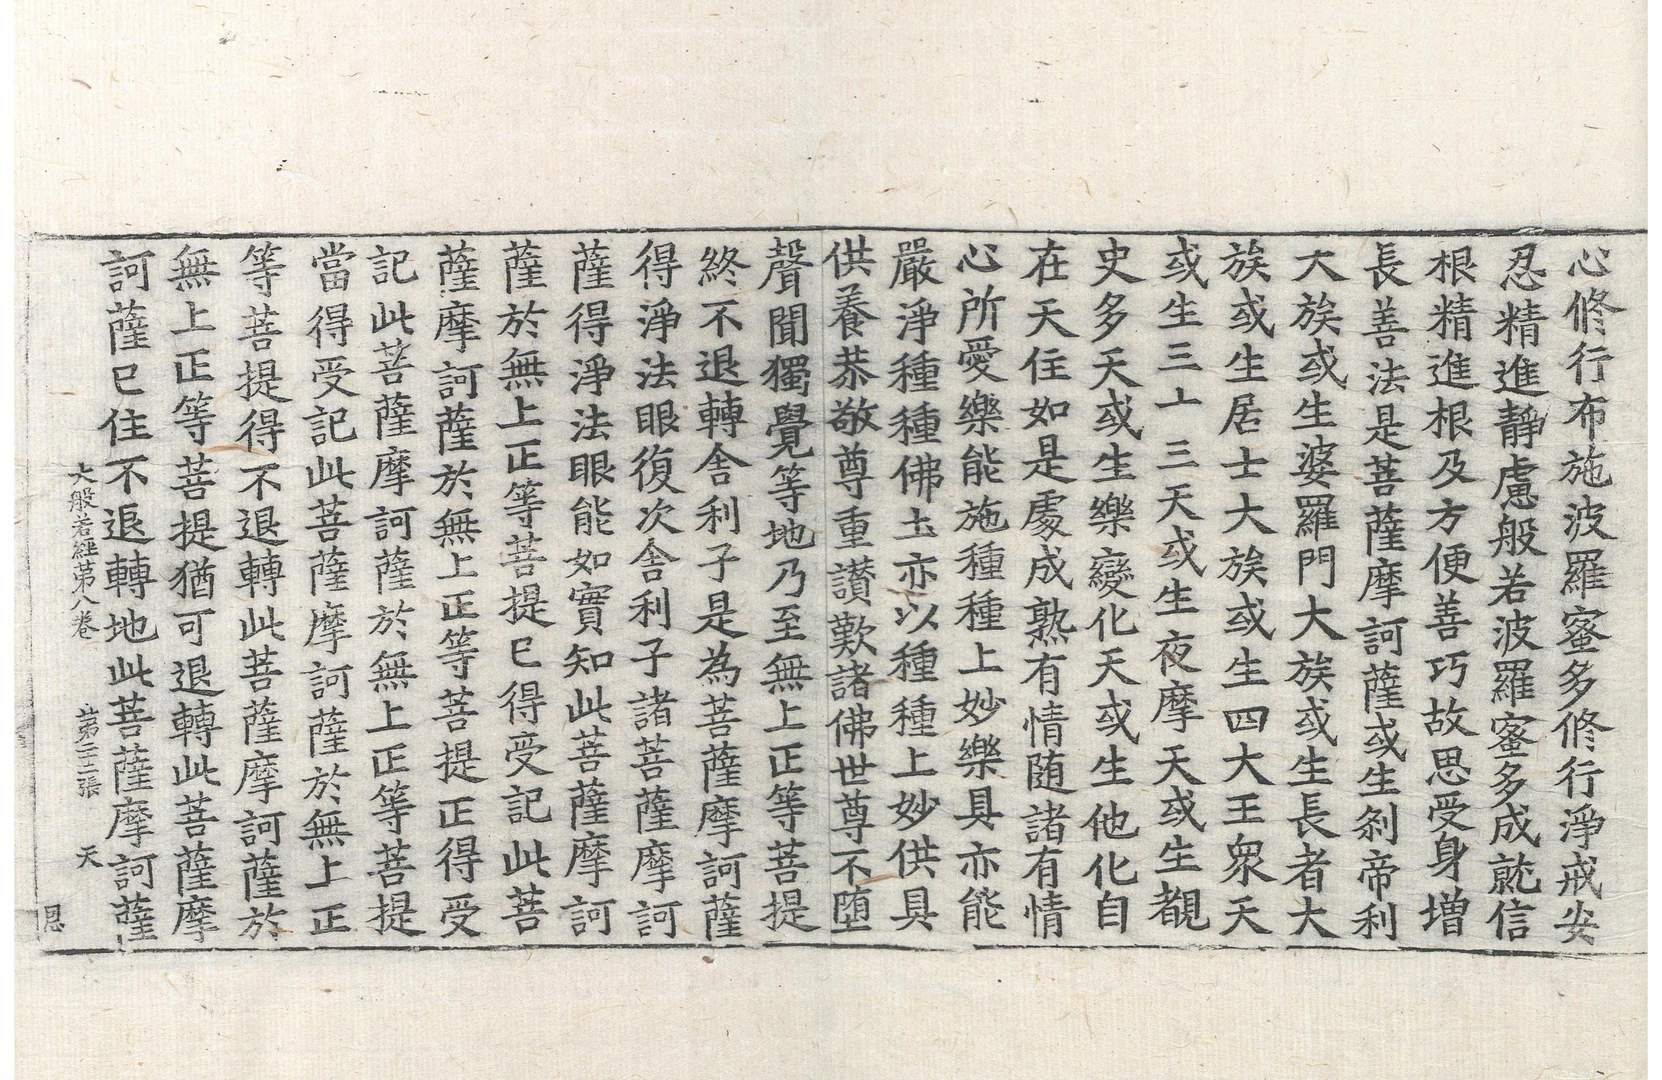 心修行布施波羅蜜多修行淨戒安
忍精進靜慮般若波羅蜜多成就信
根精進根及方便善巧故思受身增
長善法是菩薩摩訶薩或生剎帝利
大族或生婆羅門大族或生長者大
族或生居士大族或生四大王衆天
或生三十三天或生夜摩天或生覩
史多天或生樂變化天或生他化自
在天住如是處成熟有情随諸有情
心所愛樂能施種種上妙樂具亦能
嚴淨種種佛土亦以種種上妙供具
供養恭敬尊重讃歎諸佛世尊不堕
聲聞獨覺等地乃至無上正等菩提
終不退轉舍利子是為菩薩摩訶薩
得淨法眼復次舍利子諸菩薩摩訶
薩得淨法眼能如實知此菩薩摩訶
薩於無上正等菩提已得受記此菩
薩摩訶薩於無上正等菩提正得受
記此菩薩摩訶薩於無上正等菩提
當得受記此菩薩摩訶薩於無上正
等菩提得不退轉此菩薩摩訶薩於
無上正等菩提猶可退轉此菩薩摩
訶薩已住不退轉地此菩薩摩訶薩
大般若經第八卷 第二十二張 天
恩